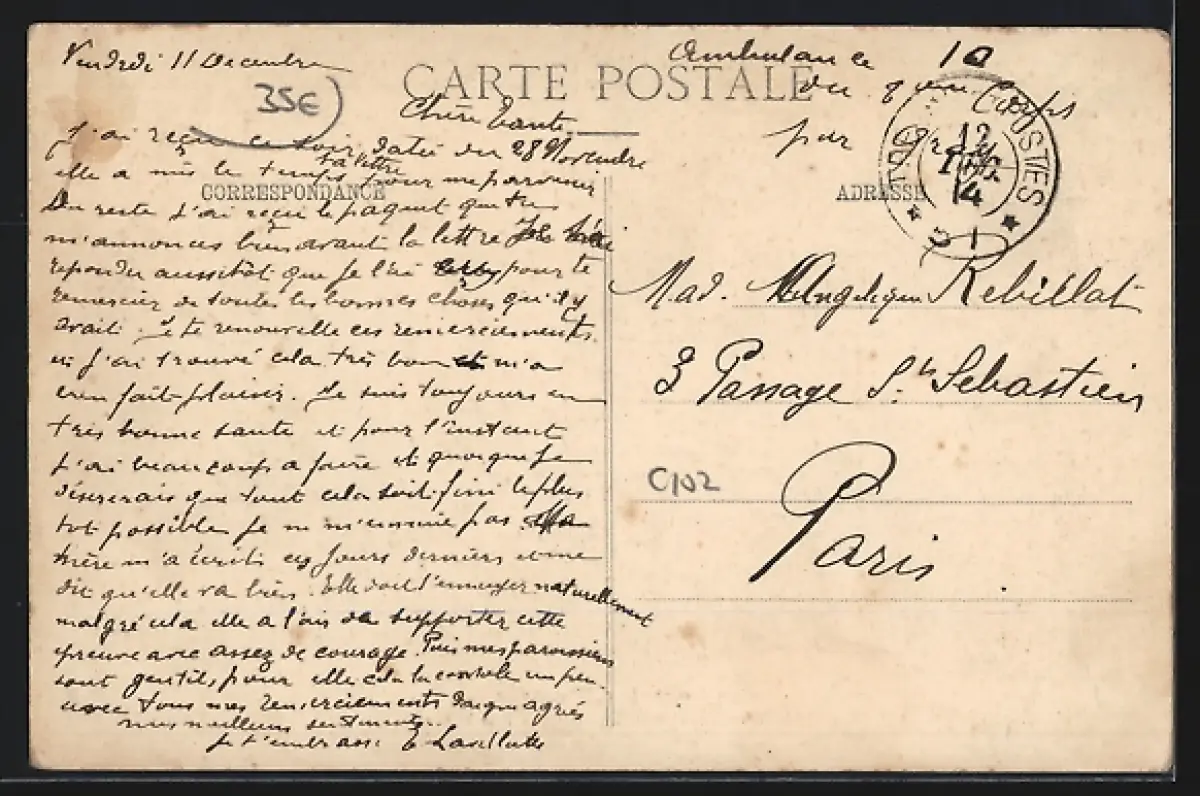 Vendredi 11 Decembre
35€
CARTE POSTALE
Chère Tante
J'ai reçu ce soir ta lettre datée du 28 Novembre
elle a mis le temps pour me parvenir
CORRESPONDANCE
Du reste j'ai reçu le paquet que tu
m'annonces bien avant la lettre
repondu aussitôt que je l'ai pour te
remercier de toutes les bonnes choses qu'il y
avait. Je te renouvelle ces remerciements.
et j'ai trouvé cela très bon et m'a
bien fait plaisir. Je suis toujours en
très bonne santé et pour l'instant
j'ai beaucoup a faire et quoique je
désirerais que tout cela soit fini le plus
tot possible je ne m'ennuie pas. Ma
mère m'a écrit ces jours derniers et me
dit qu'elle va bien. Elle doit s'ennuyer naturellement
malgré cela elle a l'air de supporter cette
epreuve avec assez de courage. Puis mes paroissiens
sont gentils pour elle cela la console un peu.
avec tous mes remerciements
mes meilleurs sentiments.
Je t'embrasse E
Ambulance 10
du Corps
par
ADRESSE
12
14
POSTES
Mad. Angelique Rebillat
3 Passage St. Sebastien
C102
Paris